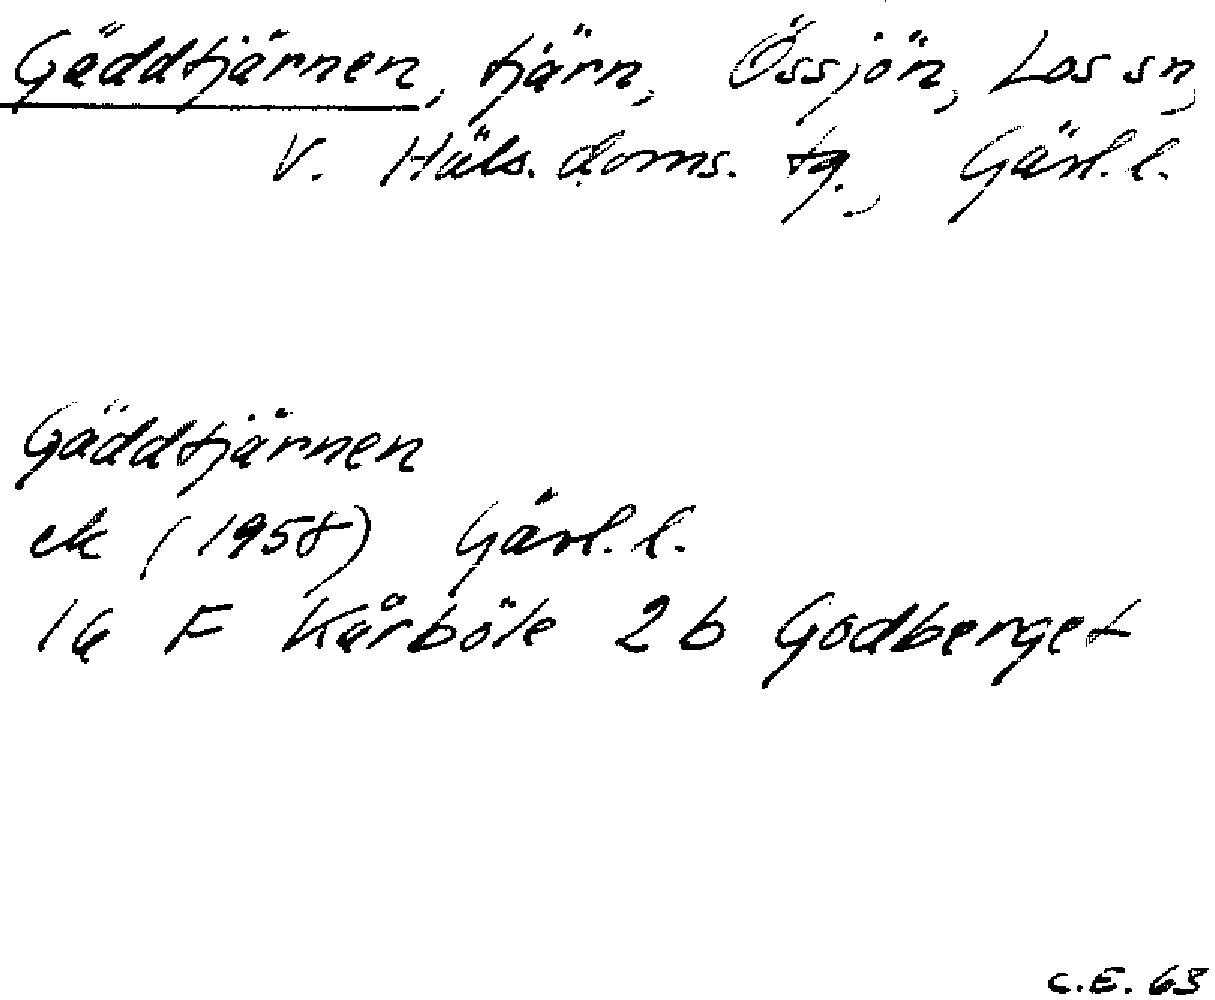 Gäddtjärnen, tjärn, Össjön, Los sn,
V. Häls. doms. tg., Gävl. l.
Gäddtjärnen
ek (1958) Gävl. l.
16 F Kårböle 2 b Godberget
C.E. 63